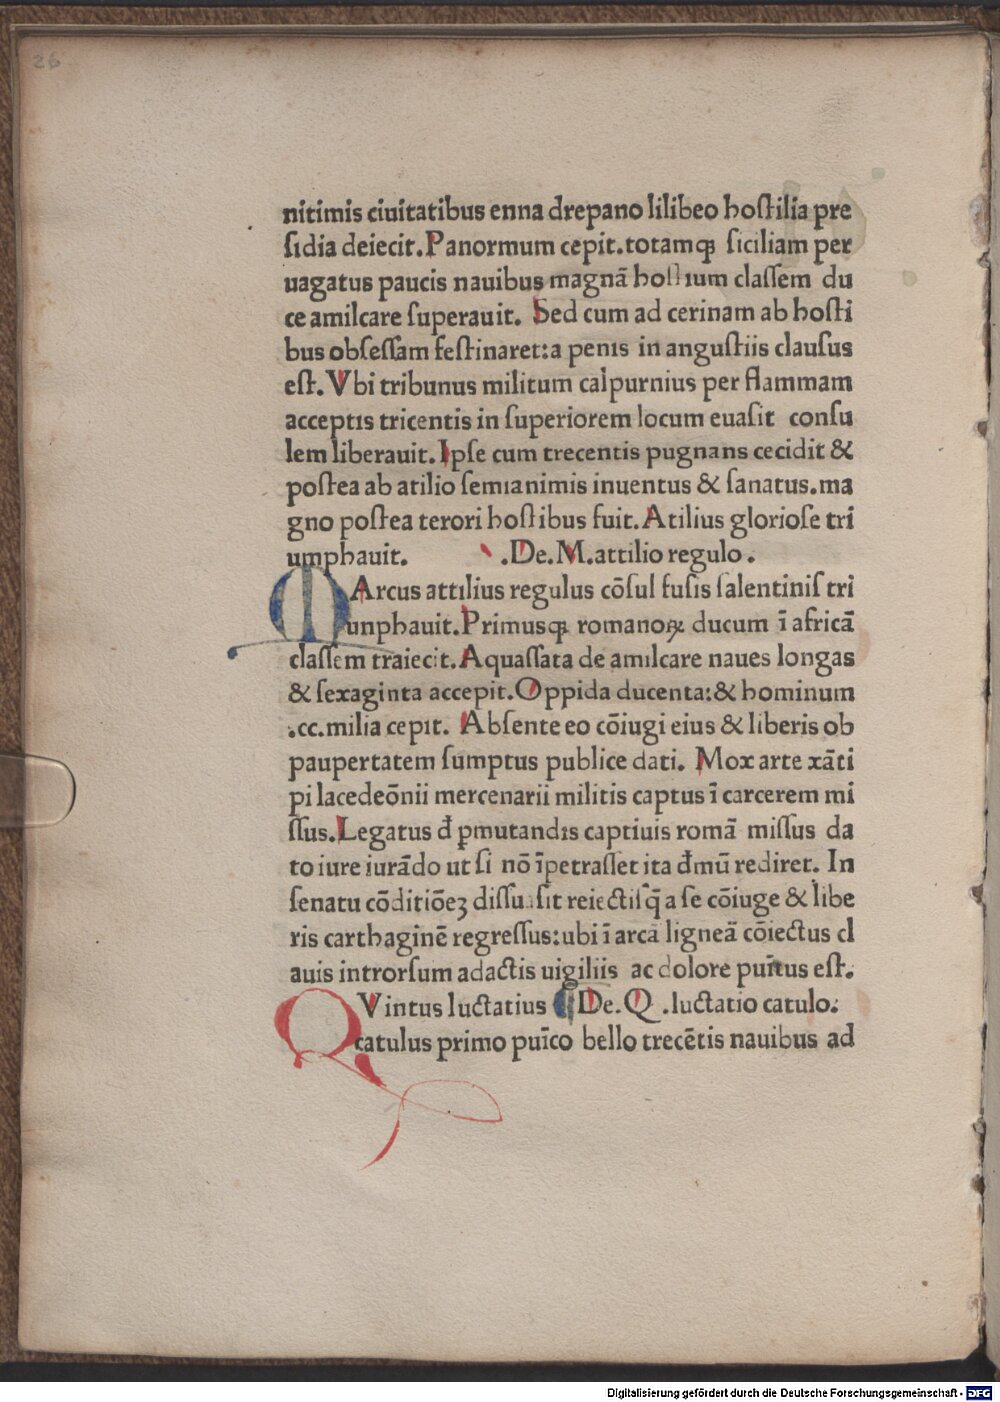 26
nitimis ciuitatibus enna drepano lilibeo hostilia pre
sidia deiecit. Panormum cepit. totamqꝫ siciliam per
uagatus paucis nauibus magnā hostium classem du
ce amilcare superauit. Sed cum ad cerinam ab hosti
bus obsessam festinaret: a penis in angustiis clausus
est. Vbi tribunus militum calpurnius per flammam
acceptis tricentis in superiorem locum euasit consu
lem liberauit. Ipse cum trecentis pugnans cecidit &
postea ab atilio semianimis inuentus & sanatus. ma
gno postea terori hostibus fuit. Atilius gloriose tri
umphauit. .De. M. attilio regulo.
MArcus attilius regulus cōsul fusis salentinis tri
unphauit. Primusqꝫ romanoꝝ ducum ī africā
classem traiecit. Aquassata de amilcare naues longas
& sexaginta accepit. Oppida ducenta: & hominum
.cc. milia cepit. Absente eo cōiugi eius & liberis ob
paupertatem sumptus publice dati. Mox arte xāti
pi lacedeōnii mercenarii militis captus ī carcerem mi
ssus. Legatus đ pmutandis captiuis romā missus da
to iure iurādo ut si nō īpetrasset ita đmū rediret. In
senatu cōditiōeꝫ dissuasit reiectisq̄ a se cōiuge & libe
ris carthaginē regressus: ubi ī arca ligneā cōiectus cl
auis introrsum adactis uigiliis ac dolore puītus est.
QVintus luctatius De. Q. luctatio catulo.
catulus primo puīco bello trecētis nauibus ad
Digitalisierung gefördert durch die Deutsche Forschungsgemeinschaft - DFG